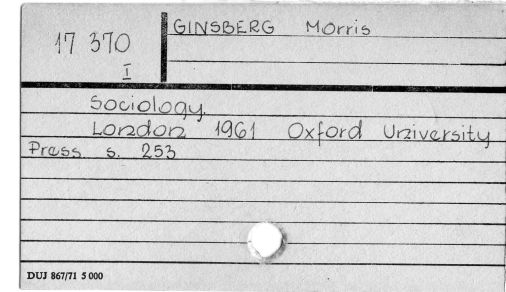 GINSBERG Morris
17 370
I
Sociology.
London 1961 Oxford University
Press s. 253
DUJ 867/71 5 000